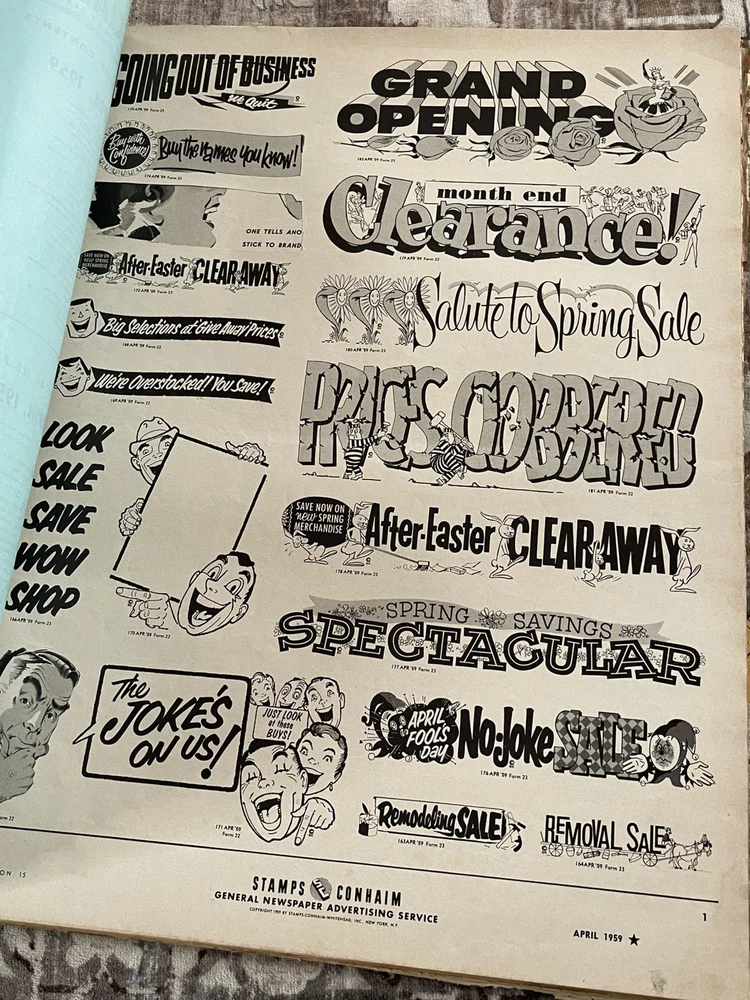 GOING OUT OF BUSINESS
We Quit
175 APR '59 Form 23
Buy with Confidence
Buy the names you know!
174 APR '59 Form 22
ONE TELLS AND
STICK TO BRAND
SAVE NOW ON
new SPRING
MERCHANDISE
After-Easter CLEAR AWAY
172 APR '59 Form 23
Big Selections at Give Away Prices
168 APR '59 Form 22
We're Overstocked! You Save!
169 APR '59 Form 22
LOOK
SALE
SAVE
WOW
SHOP
166 APR '59 Form 23
170 APR '59 Form 22
The
JOKE'S
ON US!
JUST LOOK
at these
BUYS!
171 APR '59
Form 22
GRAND
OPENING
182 APR '59 Form 22
month end
Clearance!
179 APR '59 Form 22
Salute to Spring Sale
180 APR '59 Form 22
PRICES CLOBBERED
181 APR '59 Form 22
SAVE NOW ON
new SPRING
MERCHANDISE
After-Easter CLEAR AWAY
178 APR '59 Form 22
SPRING SAVINGS
SPECTACULAR
177 APR '59 Form 23
APRIL
FOOL'S
DAY
No-Joke SALE
176 APR '59 Form 23
Remodeling SALE!
163 APR '59 Form 23
REMOVAL SALE
164 APR '59 Form 23
ON 15
STAMPS CONHAIM
GENERAL NEWSPAPER ADVERTISING SERVICE
COPYRIGHT 1959 BY STAMPS-CONHAIM-WHITEHEAD, INC., NEW YORK, N.Y.
1
APRIL 1959 ★